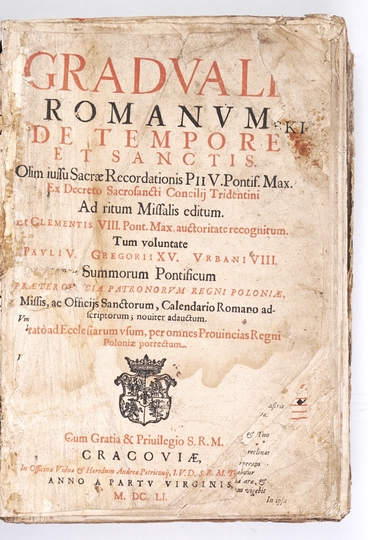 GRADVAL
ROMANVM
KI
DE TEMPORE
ET SANCTIS.
Olim iussu Sacræ Recordationis PII V. Pontif. Max.
Ex Decreto Sacrosancti Concilij Tridentini
Ad ritum Missalis editum.
Et CLEMENTIS VIII. Pont. Max. auctoritate recognitum.
Tum voluntate
PAULI V. GREGORII XV. URBANI VIII.
Summorum Pontificum
PRÆTEREA PATRONORVM REGNI POLONIÆ,
Missis, ac Officijs Sanctorum, Calendario Romano ad-
scriptorum; noviter adauctum.
ad Ecclesiarum vsum, per omnes Provincias Regni
Poloniæ porrectum.
Cum Gratia & Priuilegio S. R. M.
CRACOVIÆ,
In Officina Viduæ & Heredum Andreæ Petricouij, S. R. M.
ANNO A PARTV VIRGINIS,
M. DC. LI.
& Tuo
In ipsa